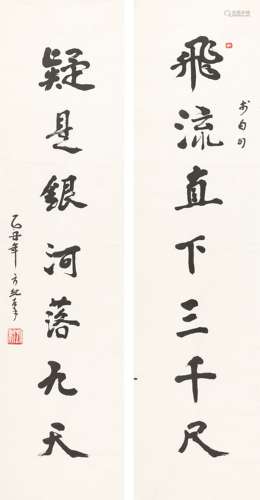 飛流直下三千尺
李白句
疑是銀河落九天
乙丑年